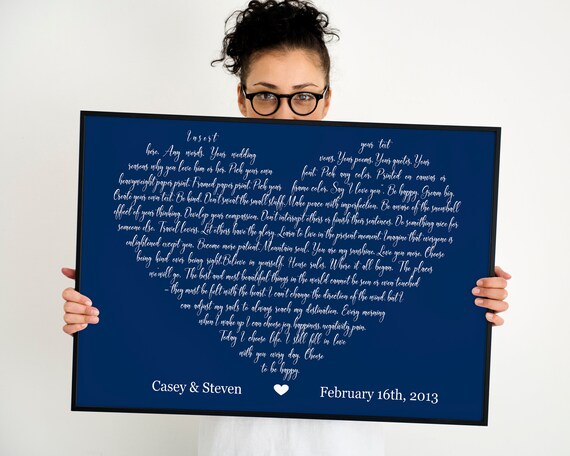 Insert your text
here. Any words. Your wedding vows. Your poems. Your quotes. Your
reasons why you love him or her. Pick your own font. Pick any color. Printed on canvas or
heavyweight paper print. Framed paper print. Pick your frame color. Say "I love you". Be happy. Dream big.
Create your own text. Be kind. Don't sweat the small stuff. Make peace with imperfection. Be aware of the snowball
effect of your thinking. Develop your compassion. Don't interrupt others or finish their sentences. Do something nice for
someone else. Travel Lovers. Let others have the glory. Learn to live in the present moment. Imagine that everyone is
enlightened except you. Become more patient. Mountain soul. You are my sunshine. Love you more. Choose
being kind over being right. Believe in yourself. House sales. Where it all began. The places
we will go. The best and most beautiful things in the world cannot be seen or even touched
- they must be felt with the heart. I can't change the direction of the wind, but I
can adjust my sails to always reach my destination. Every morning
when I wake up I can choose joy, happiness, negativity, pain.
Today I choose life. I still fall in love
with you every day. Choose
to be happy.
Casey & Steven February 16th, 2013